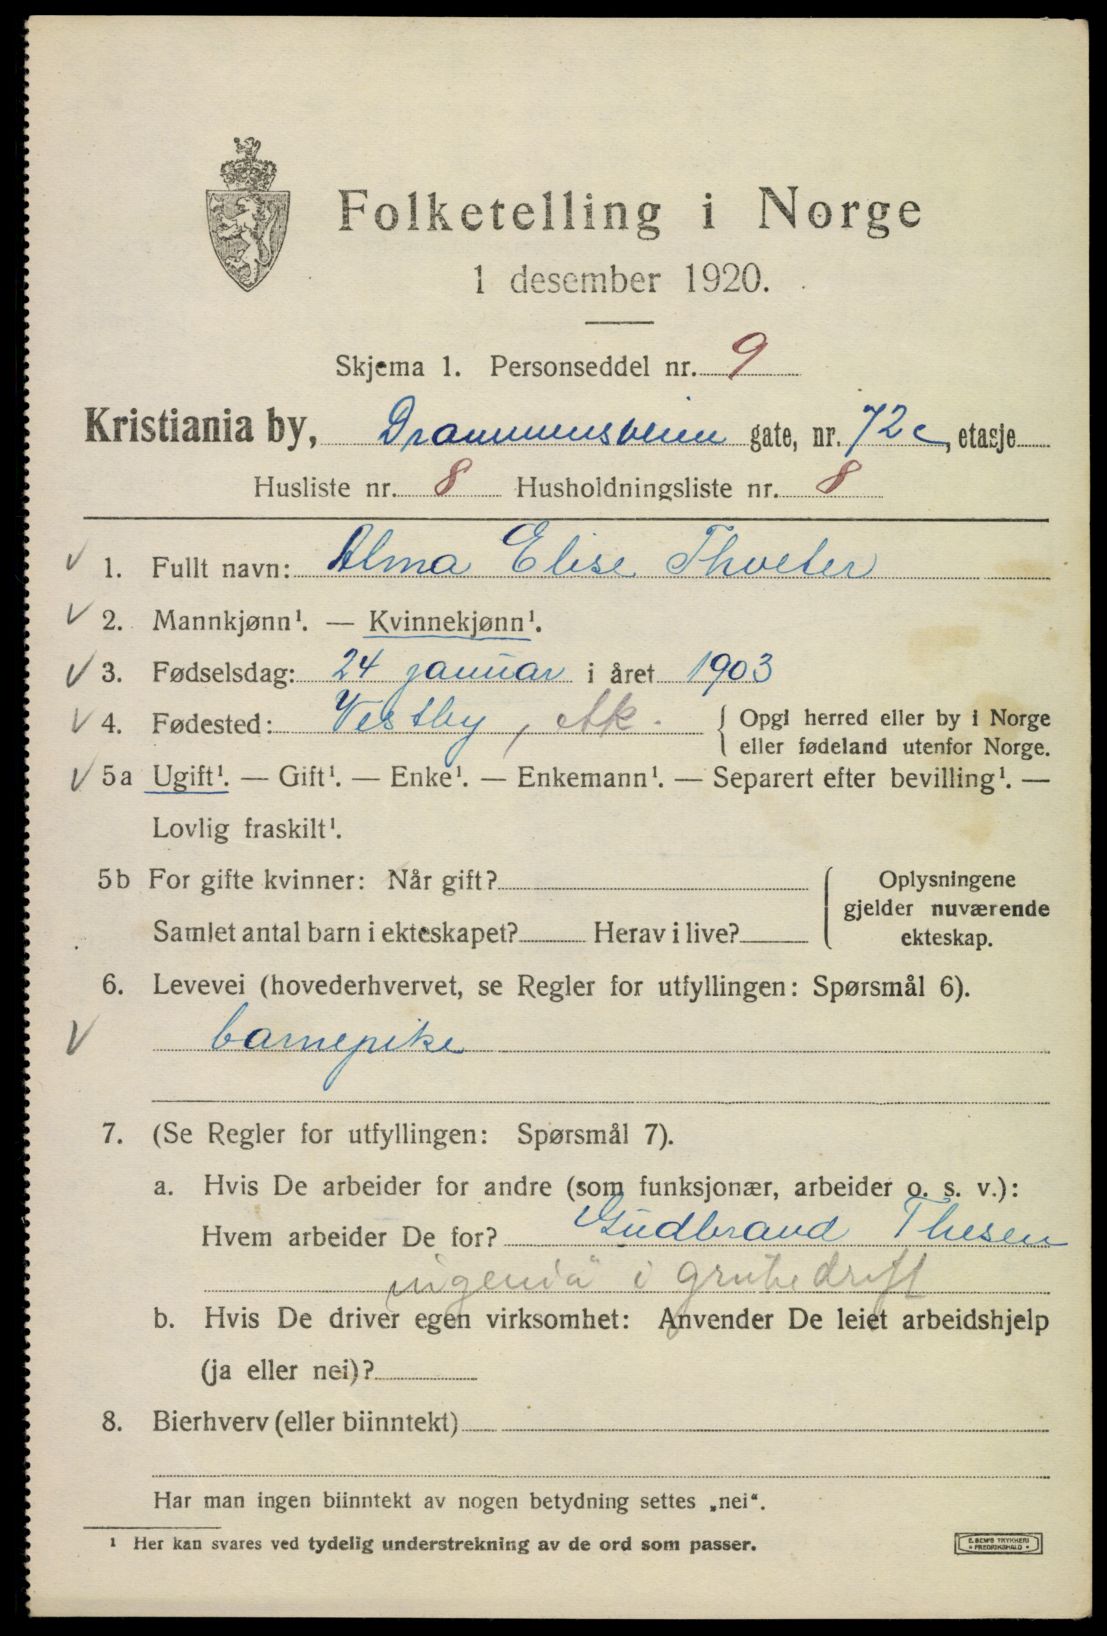 Folketelling i Norge
1 desember 1920.
Skjema 1. Personseddel nr. 9
Kristiania by, Drammensveien gate, nr. 72c, etasje
Husliste nr. 8 Husholdningsliste nr. 8
1. Fullt navn: Alma Elise Thveter
2. Mannkjønn¹. — Kvinnekjønn¹.
3. Fødselsdag: 24 januar i året 1903
4. Fødested: Vestby, Ak. { Opgi herred eller by i Norge
eller fødeland utenfor Norge.
5a Ugift¹. — Gift¹. — Enke¹. — Enkemann¹. — Separert efter bevilling¹. —
Lovlig fraskilt¹.
5b For gifte kvinner: Når gift?
Samlet antal barn i ekteskapet? Herav i live?
{ Oplysningene
gjelder nuværende
ekteskap.
6. Levevei (hovederhvervet, se Regler for utfyllingen: Spørsmål 6).
barnepike
7. (Se Regler for utfyllingen: Spørsmål 7).
a. Hvis De arbeider for andre (som funksjonær, arbeider o. s. v.):
Hvem arbeider De for? Gudbrand Thesen
ingeniø i grubedrift
b. Hvis De driver egen virksomhet: Anvender De leiet arbeidshjelp
(ja eller nei)?
8. Bierhverv (eller biinntekt)
Har man ingen biinntekt av nogen betydning settes „nei“.
¹ Her kan svares ved tydelig understrekning av de ord som passer.
E. SEM'S TRYKKERI
FREDRIKSHALD